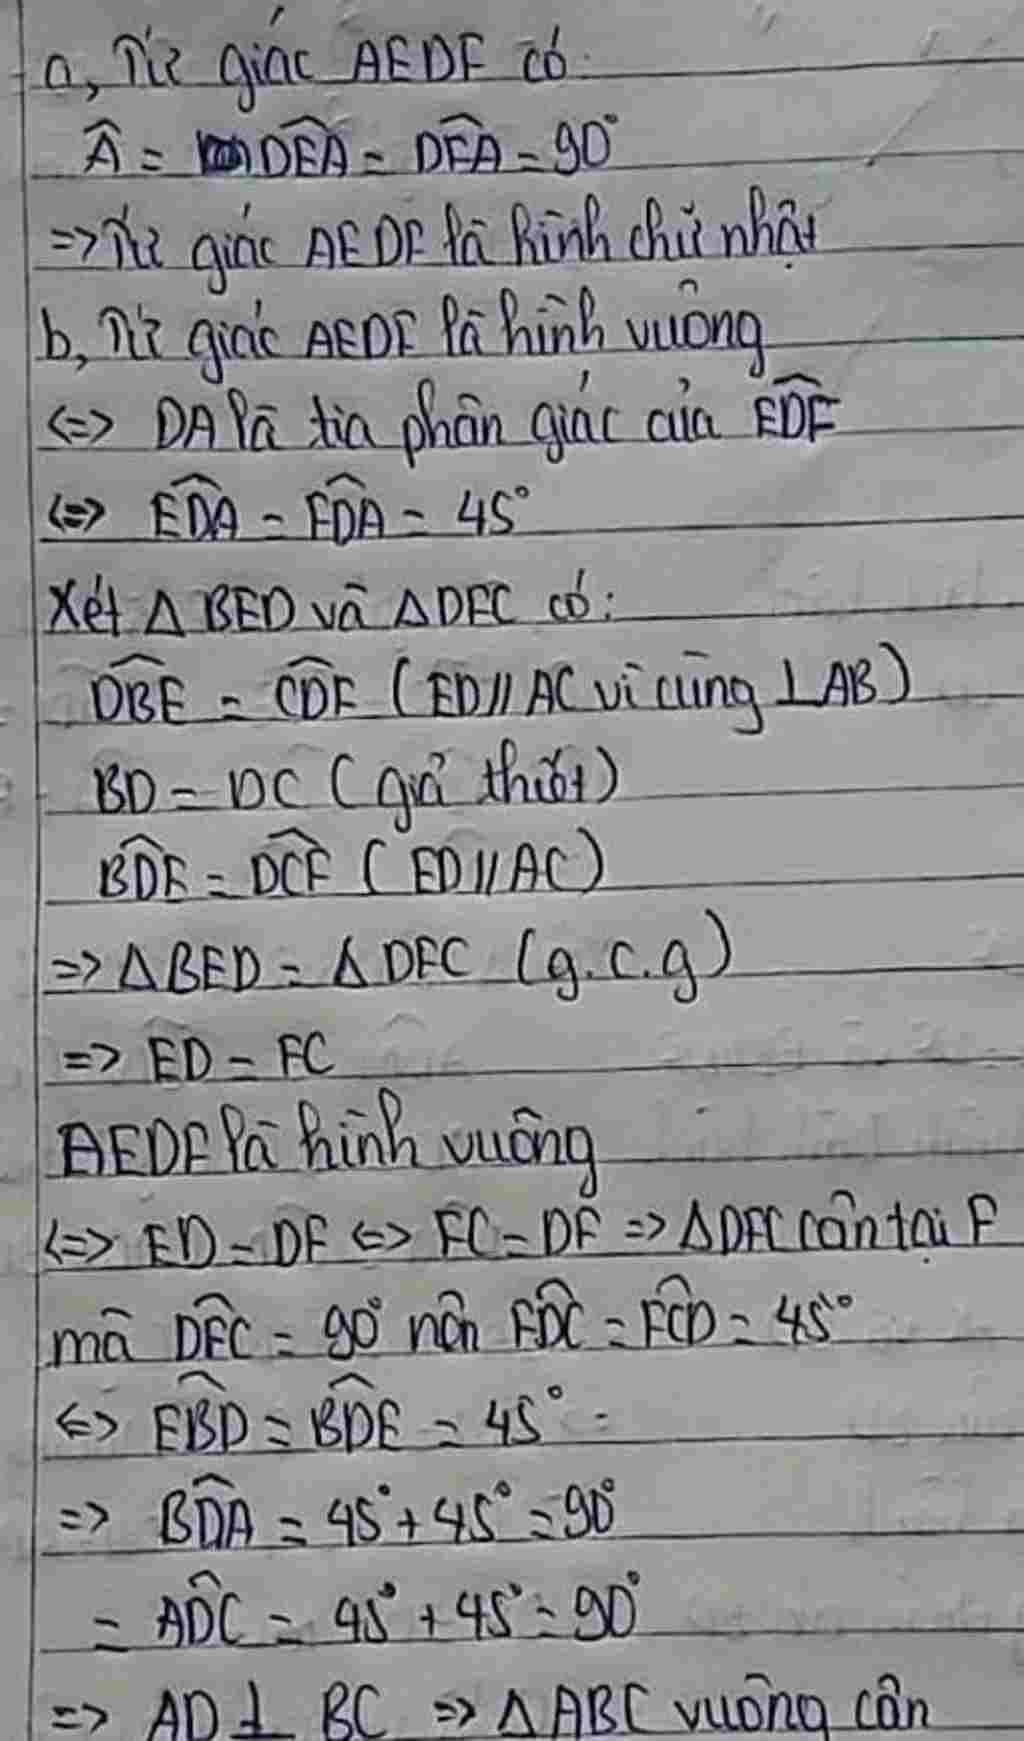 a, Tứ giác AEDF có:
Â = DEA = DFA = 90°
=> Tứ giác AEDF là hình chữ nhật
b, Tứ giác AEDF là hình vuông
<=> DA là tia phân giác của EDF
<=> EDA = FDA = 45°
Xét △BED và △DFC có:
DBE = CDF (ED // AC vì cùng ⊥ AB)
BD = DC (giả thiết)
BDE = DCF (ED // AC)
=> △BED = △DFC (g.c.g)
=> ED = FC
AEDF là hình vuông
<=> ED = DF <=> FC = DF => △DFC cân tại F
mà DFC = 90° nên FDC = FCD = 45°
<=> EBD = BDE = 45°
=> BDA = 45° + 45° = 90°
= ADC = 45° + 45° = 90°
=> AD ⊥ BC => △ABC vuông cân